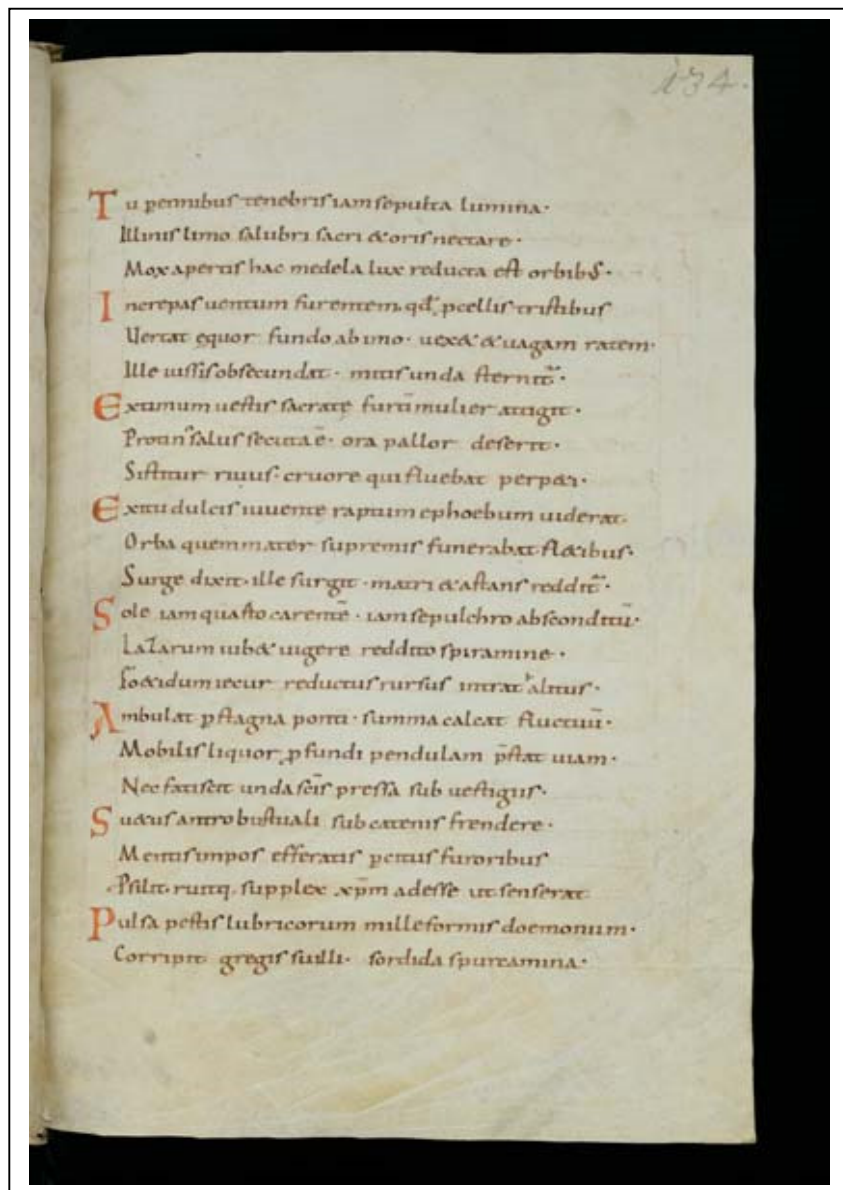 134.
Tu pennibus tenebris iam sepulta lumina·
Illinis limo salubri sacri & oris nectare·
Mox apertis hac medela lux reducta est orbib;·
Increpas uentum furentem· qd̄ pcellis tristibus
Uertat ęquor fundo ab imo· uex& & uagam ratem·
Ille iussis obsecundat· mitis unda sternit᷑·
Extimum uestis sacratę furtī mulier attigit·
Protin᷒ salus secuta ē· ora pallor deserit·
Sistitur riuus· cruore qui fluebat perpeti·
Exitu dulcis iuuente raptum ephoebum uiderat·
Orba quem mater supremis funerabat fl&ibus·
Surge dixit· ille surgit· matri & astans reddit᷑·
Sole iam quarto carentē· iam sepulchro absconditū·
Lazarum iub& uigere reddito spiramine·
Fo&idum iecur reductus rursus intrat halitus·
Ambulat ꝑ stagna ponti· summa calcat fluctuū·
Mobilis liquor ꝓfundi pendulam p̄stat uiam·
Nec fatiscit unda sc̄is pressa sub uestigiis·
Su&us antro bustuali sub catenis frendere·
Mentis impos efferatis pcitus furoribus
Psilit· ruitq· supplex xp̄m adesse ut senserat
Pulsa pestis lubricorum milleformis doemonum·
Corripit gregis suilli· sordida spurcamina·